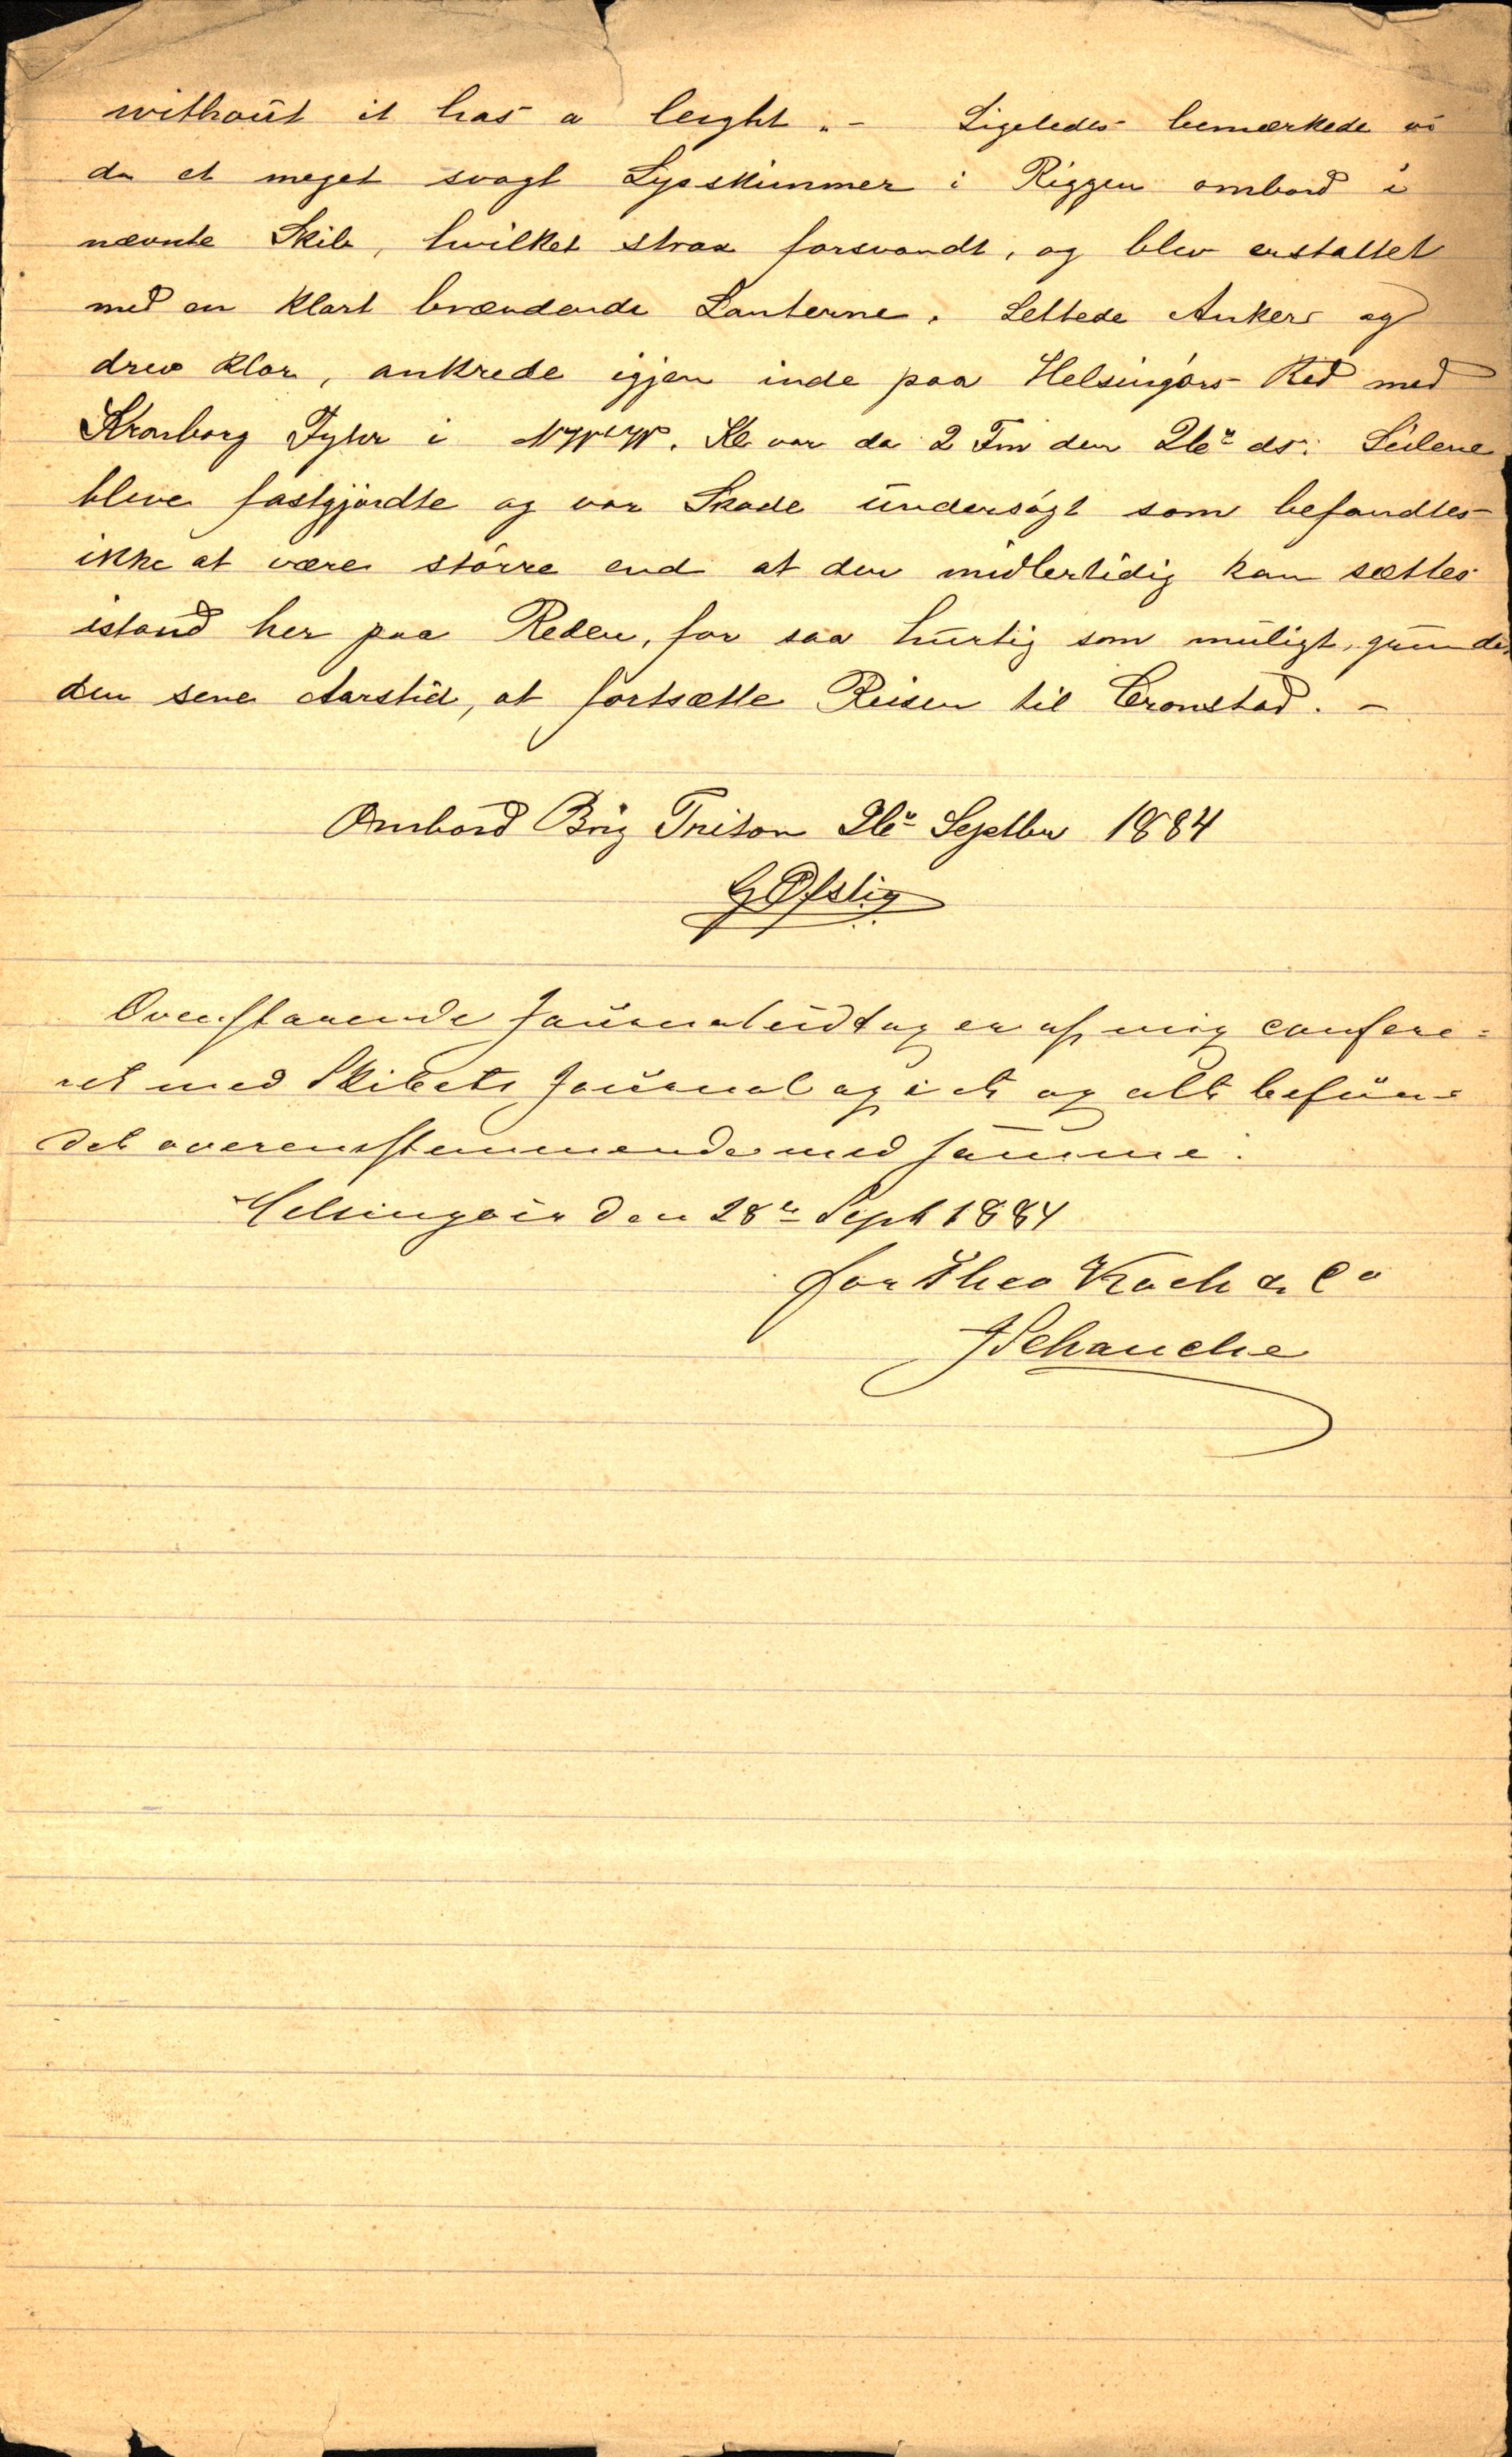 without it has a leight„ - Ligeledes bemærkede vi
da et meget svagt Lysskimmer i Riggen ombord i
nævnte Skib, hvilket strax forsvandt, og blev erstattet
med en klart brændende Lanterne. Lettede Anker og
drev klar, ankrede igjen inde paa Helsingörs Red med
Kronborg Fyhr i NWtW. Kl var da 2 Fm den 26de ds. Seilene
bleve fastgjordte og vor Skade undersögt som befandtes
ikke at være större end at den midlertidig kan sættes
istand her paa Reden, for saa hurtig som muligt, grundet
den sene Aarstid, at fortsætte Reisen til Cronstad. -
Ombord Brig Triton 26de Septbr 1884
G Ofstig
Ovenstaaende Journaludtog er af mig confere=
ret med Skibets Journal og i et og alt befun=
det overensstemmende med samme.
Helsingör den 28de Sept 1884
for Theo Koch & Co
J Schanche